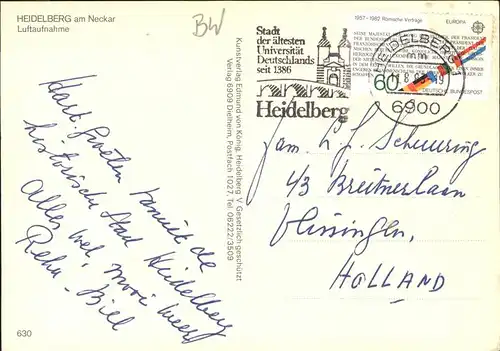 HEIDELBERG am Neckar
Luftaufnahme
BW
Hart. Groeten vanuit de
historische stad Heidelberg
Alles wel, mooi weer
Reha - Bill
630
Kunstverlag Edmund von König, Heidelberg V. Gesetzlich geschützt
Verlag 6909 Dielheim, Postfach 1027, Tel. 06222/3509
Stadt
der ältesten
Universität
Deutschlands
seit 1386
Heidelberg
1957-1982 Römische Verträge
EUROPA
60
DEUTSCHE BUNDESPOST
HEIDELBERG 1
6900
Fam. L. J. Scheurring
43 Breitnerlaan
Vlissingen,
HOLLAND